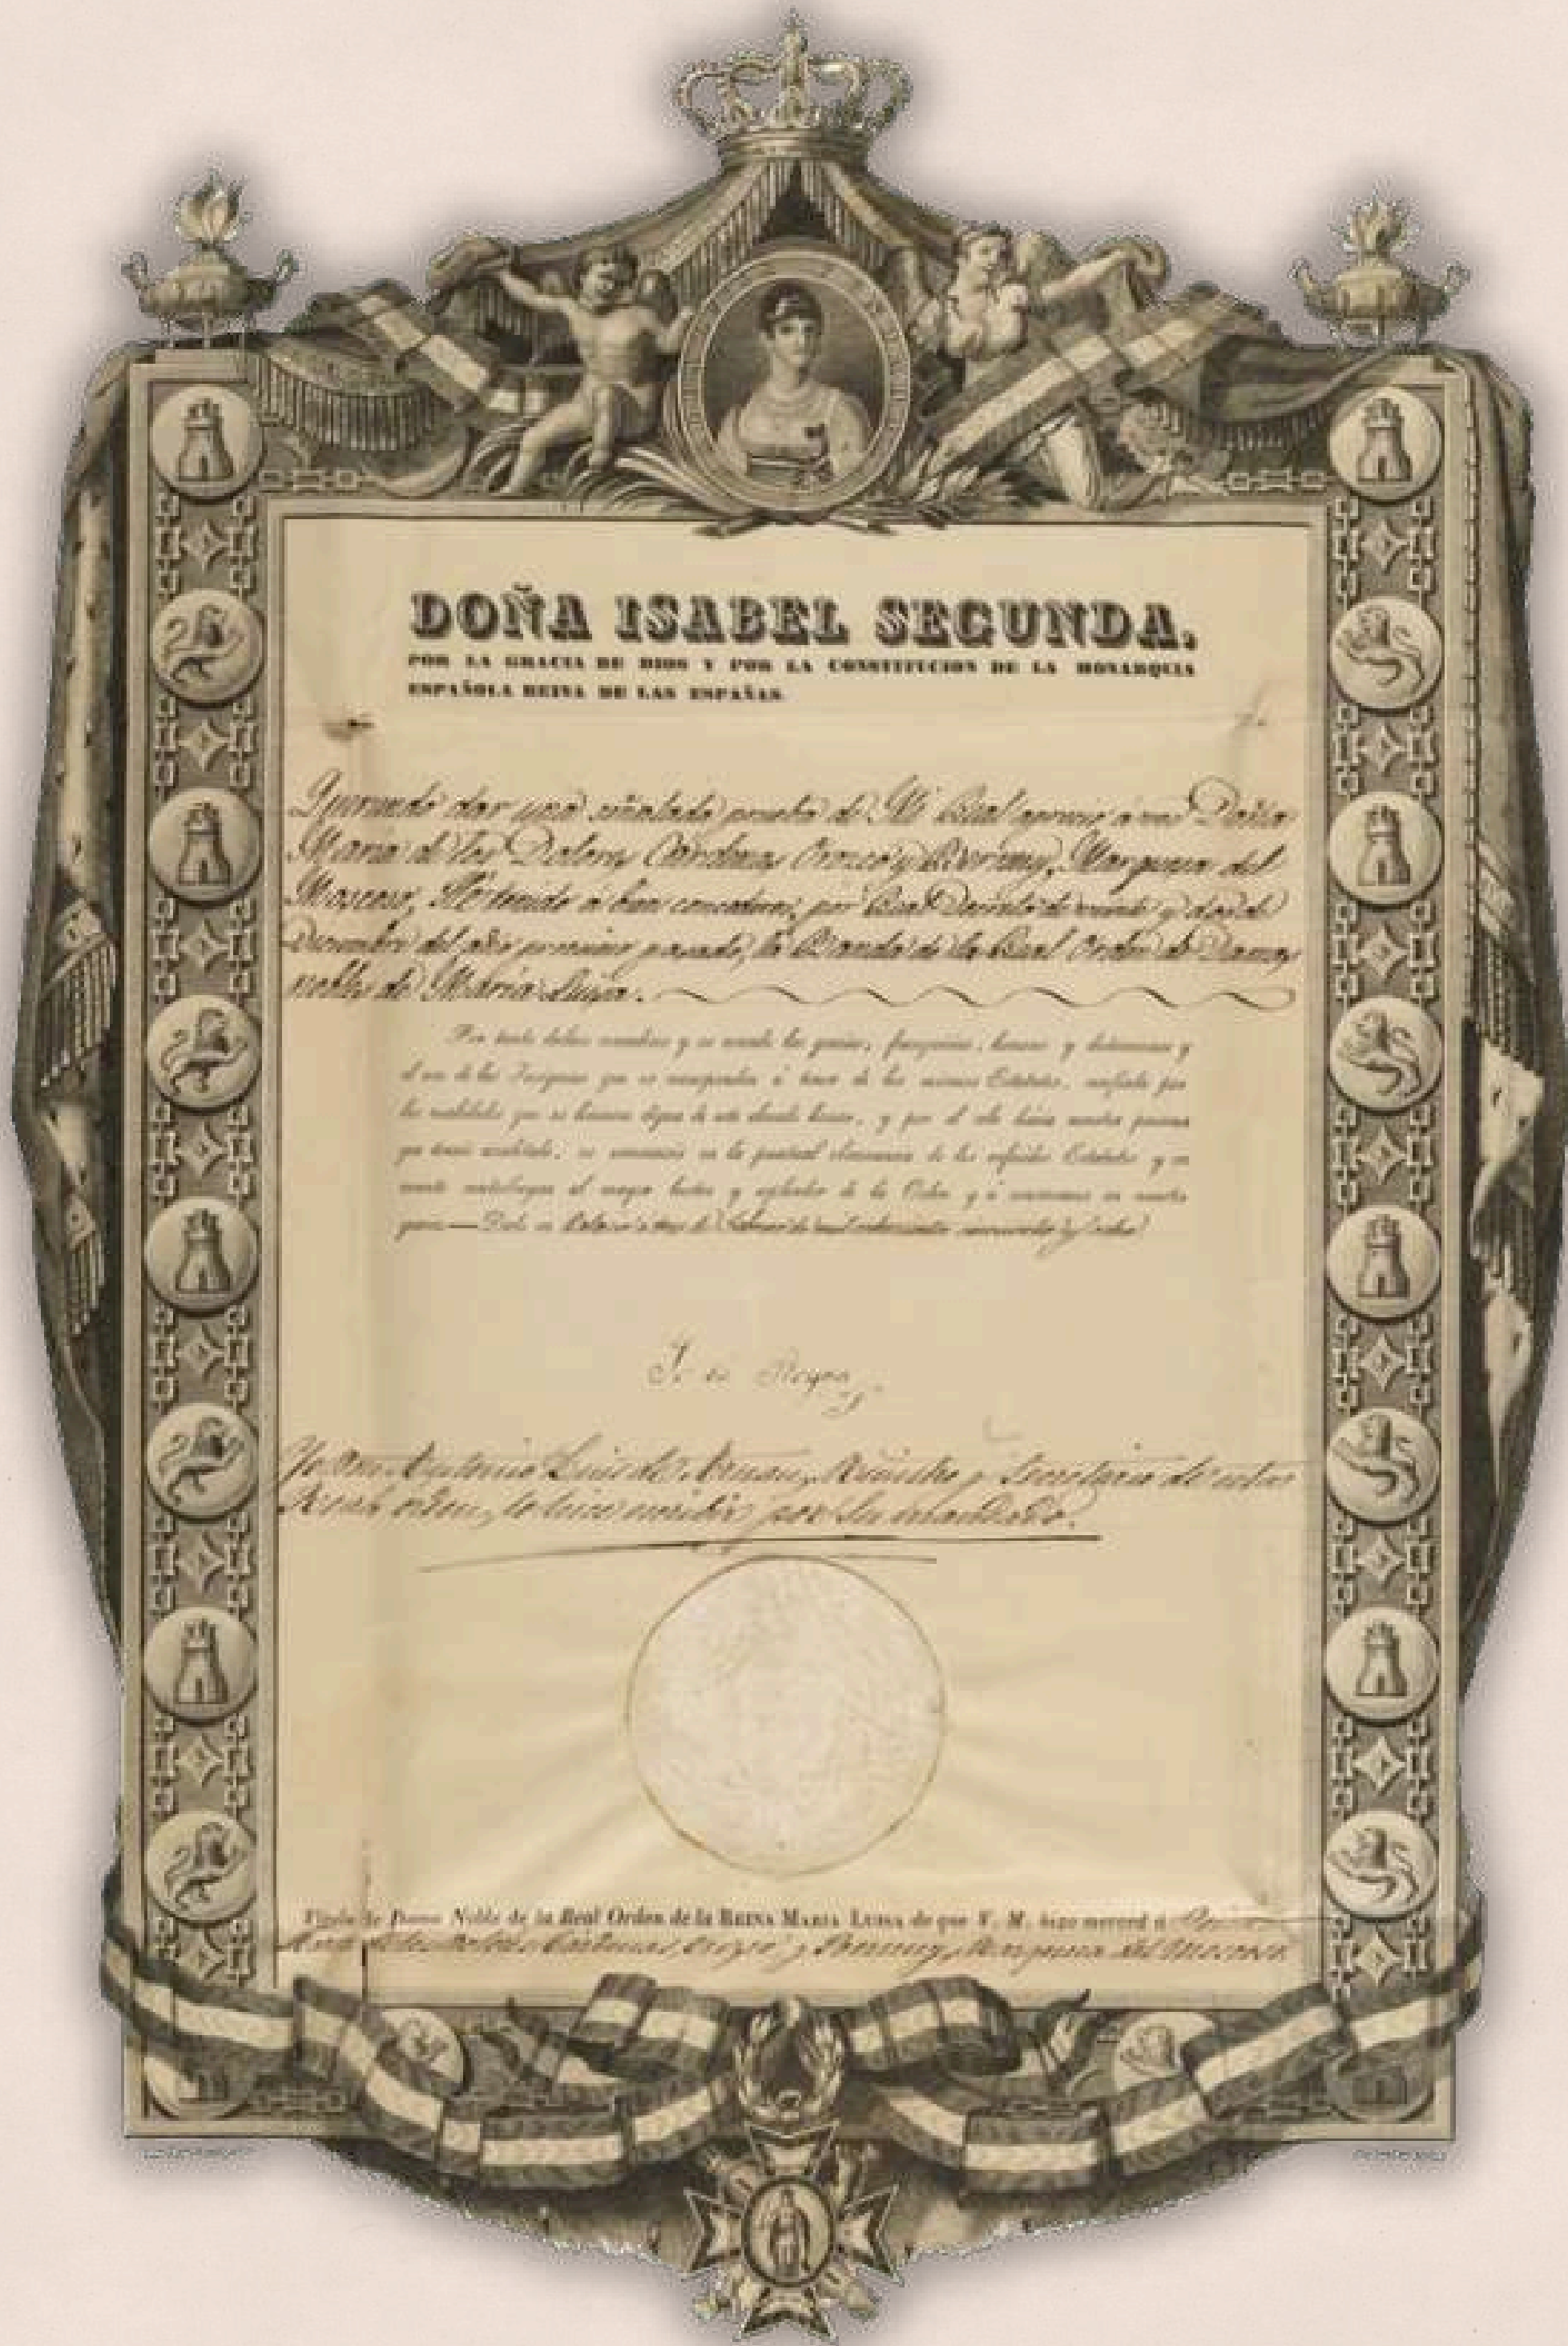 DOÑA ISABEL SEGUNDA,
POR LA GRACIA DE DIOS Y POR LA CONSTITUCION DE LA MONARQUIA
ESPAÑOLA REINA DE LAS ESPAÑAS.
Queriendo dar una señalada prueba de Mi Real aprecio á vos Doña
Maria de los Dolores Cárdenas Orozco y Marquesa del
Moscoso, He tenido á bien concederos, por Real Decreto de veinte y dos de
Diciembre del año proximo pasado, la Banda de la Real Orden de Damas
nobles de Maria Luisa.
Por tanto debeis y se os las gracias, franquicias, honores y distinciones y
el uso de las Insignias que os á tenor de los mismos Estatutos, confiada por
las cualidades que os hicieron digna de este honor, y por el celo hácia nuestra persona
que teneis acreditado, os en la puntual observancia de los referidos Estatutos y en
cuanto contribuya al mayor lustre y esplendor de la Orden y á en nuestra
gracia — Dado en Palacio á de de mil ochocientos cincuenta y ocho
Yo la Reyna
Yo Don Antonio Luis de Arnau, Ministro y Secretario de esta
Real orden, lo hice escribir por Su mandado.
Título de Dama Noble de la Real Orden de la REINA MARIA LUISA de que V. M. hizo merced á Doña
de los Dolores Cárdenas, Orozco y Marquesa del Moscoso